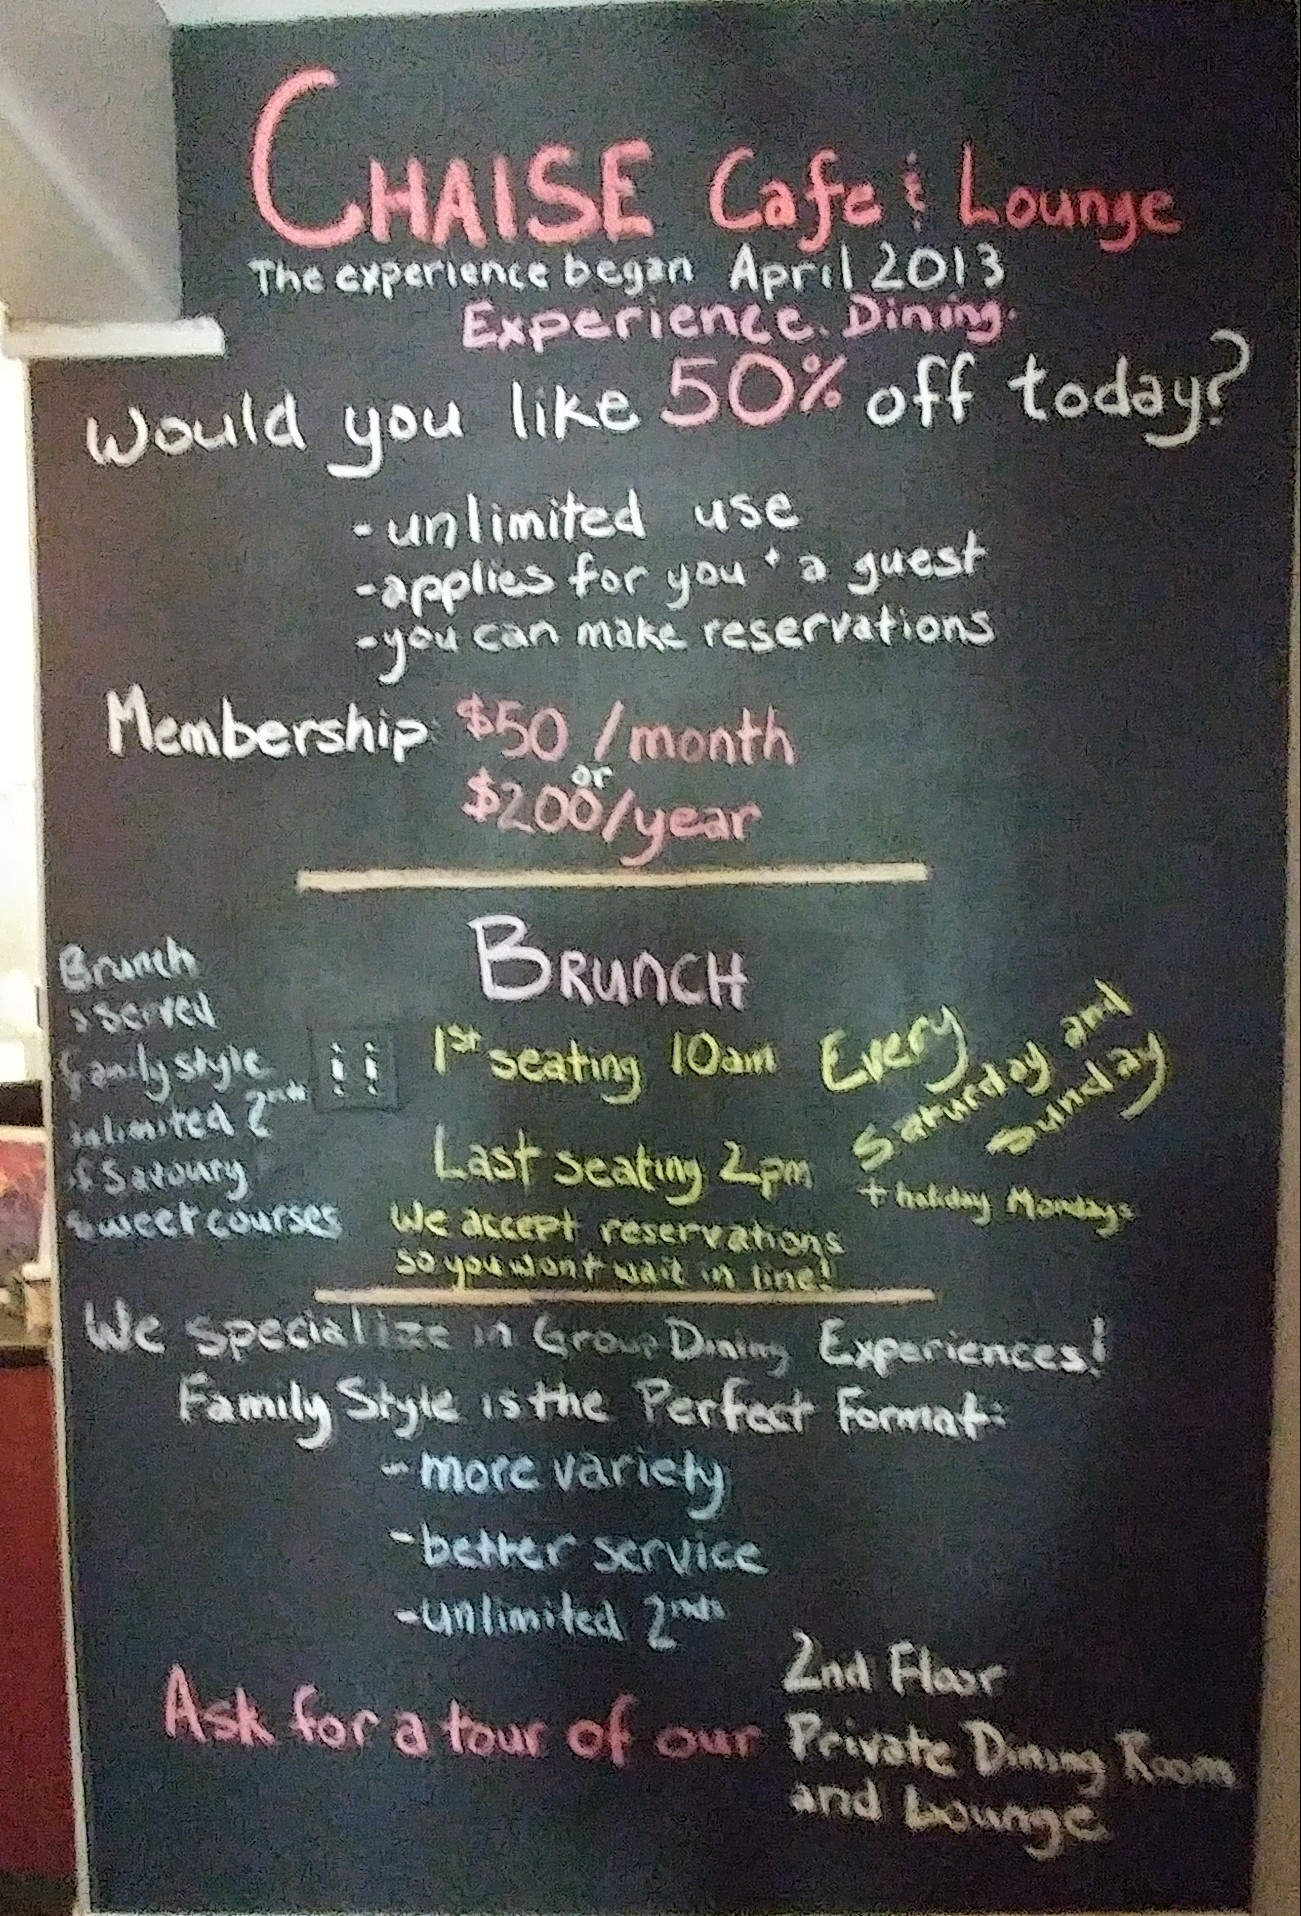 CHAISE Cafe & Lounge
The experience began April 2013
Experience. Dining.
Would you like 50% off today?
-unlimited use
-applies for you + a guest
-you can make reservations
Membership: $50 /month
or
$200/year
BRUNCH
Brunch
served
family style
unlimited 2nds
of Savoury
sweet courses
1st seating 10am
Last seating 2pm
We accept reservations
so you won't wait in line!
Every
Saturday and
Sunday
+ holiday Mondays
We specialize in Group Dining Experiences!
Family Style is the Perfect Format:
-more variety
-better service
-unlimited 2nds
Ask for a tour of our
2nd Floor
Private Dining Room
and Lounge